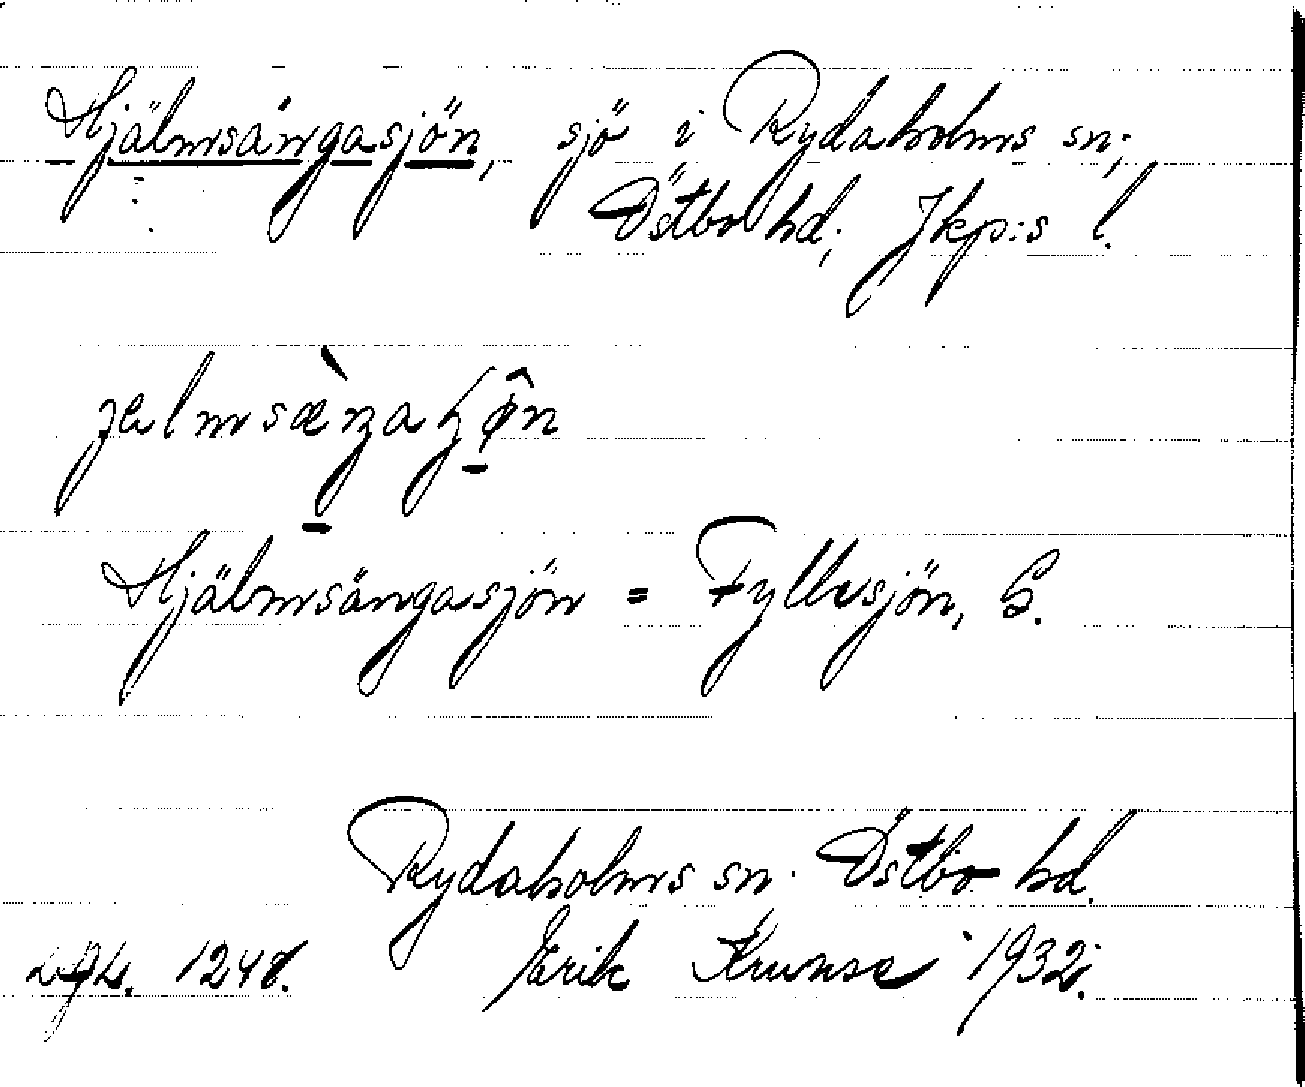 Hjälmsängasjön, sjö i Rydaholms sn;
Östbo hd; Jkp:s l.
jælmsæ̀ŋaɧø̂n
Hjälmsängasjön = Fyllesjön, G.
Rydaholms sn. Östbo hd.
1248. Erik Krunse 1932.